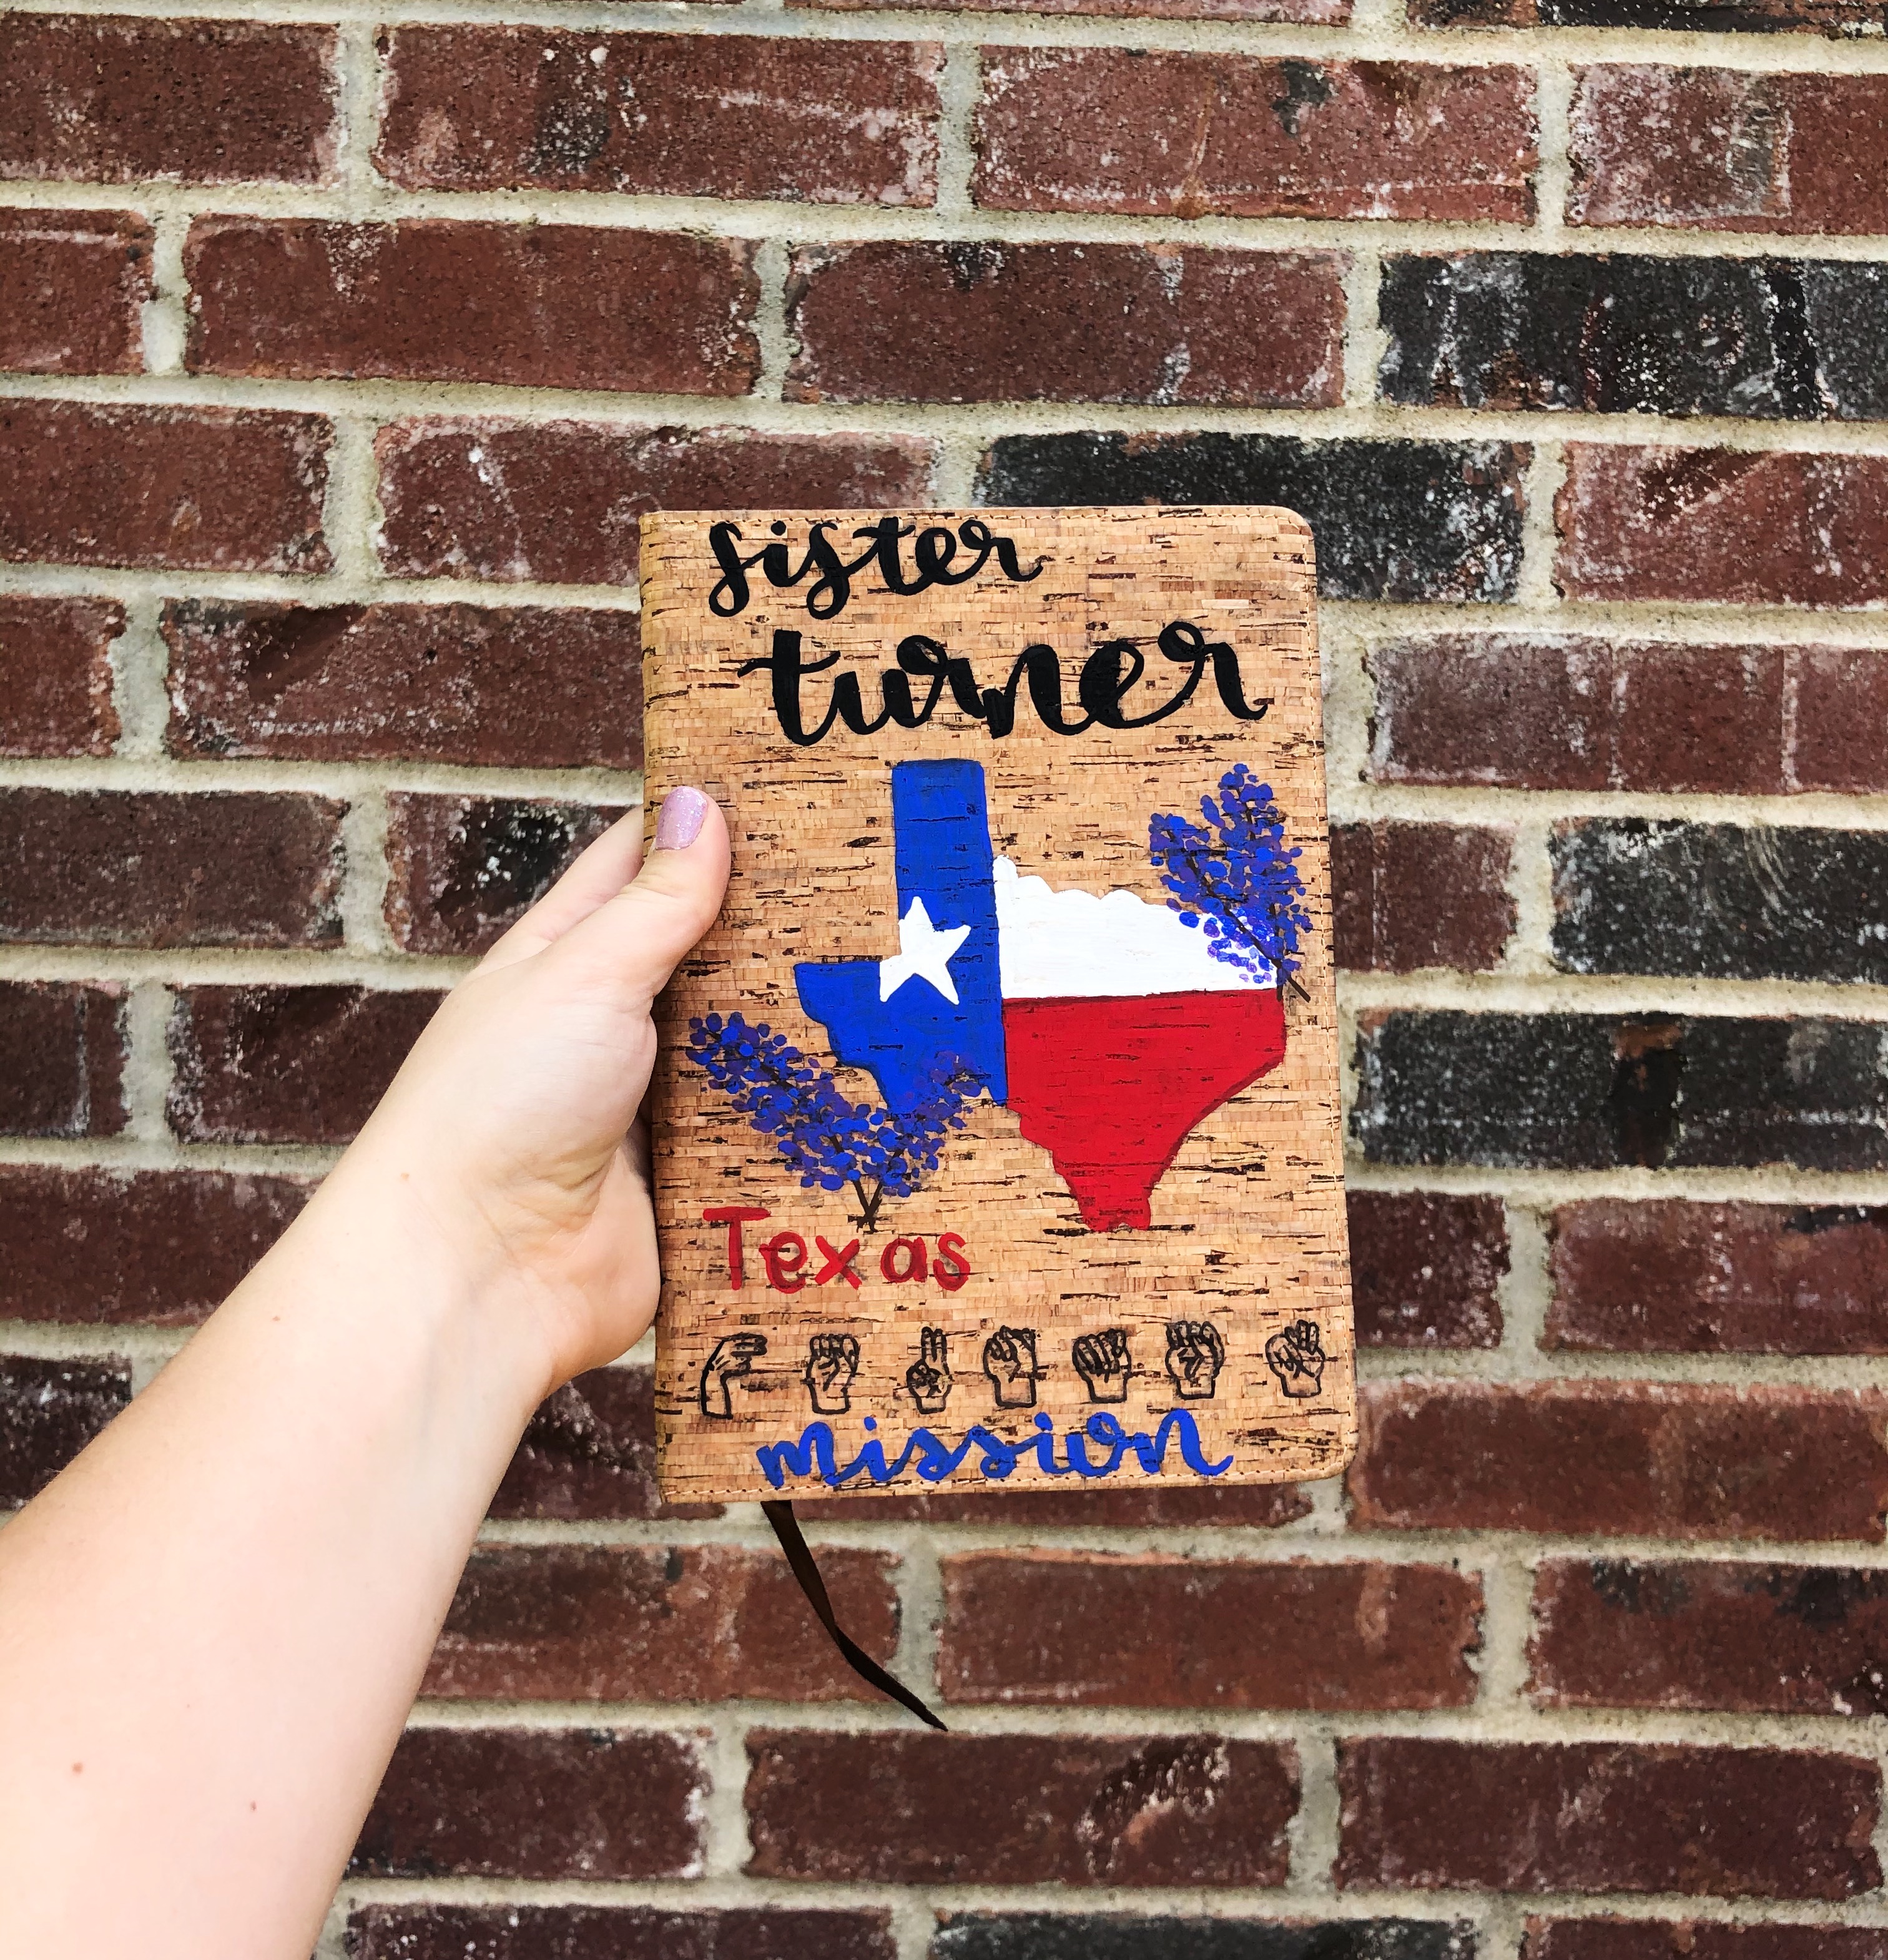 sister
turner
Texas
mission